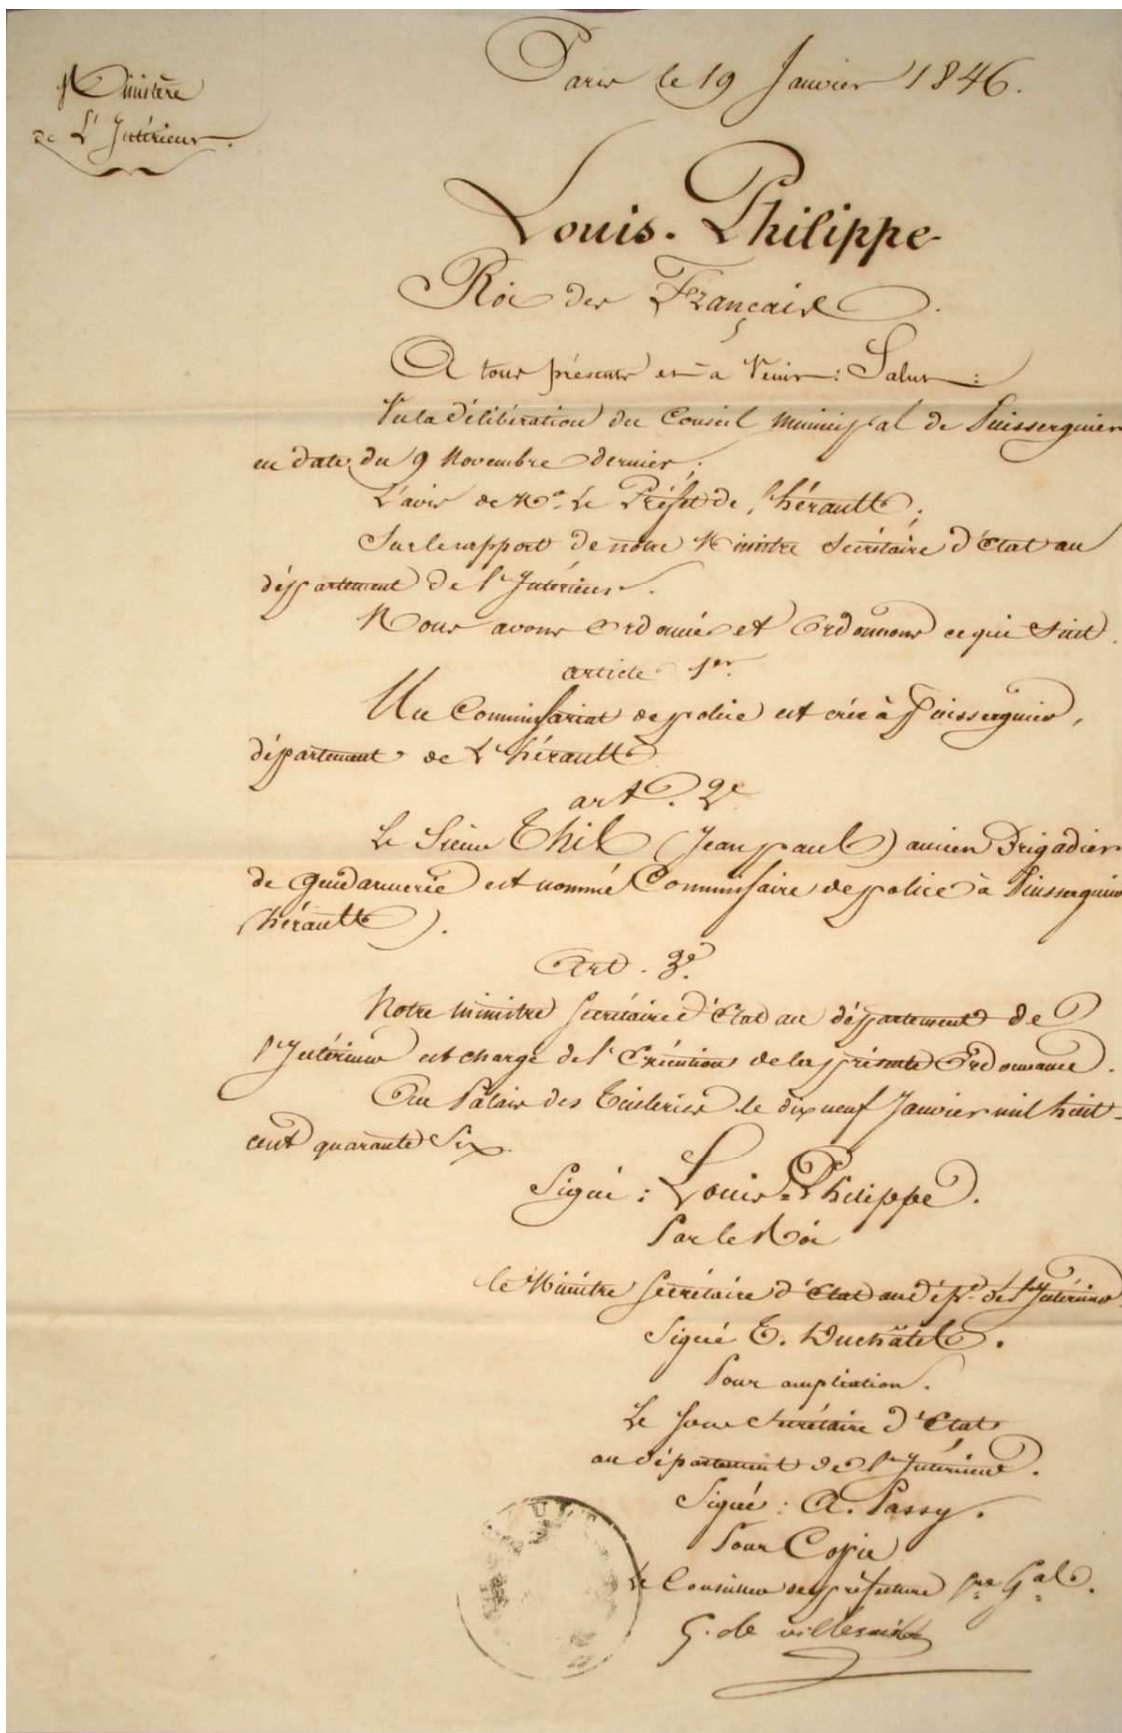 Ministère
de L'Intérieur.
Paris le 19 Janvier 1846.
Louis-Philippe
Roi des Français.
A tous présents et à Venir: Salut:
Vu la délibération du Conseil Municipal de Puisserguier
en date du 9 Novembre dernier;
L'avis de Mr. Le Préfet de l'hérault;
Sur le rapport de notre Ministre Secrétaire d'Etat au
département de l'Intérieur.
Nous avons Ordonné et Ordonnons ce qui Suit.
article 1er.
Un Commissariat de police est créé à Puisserguier,
département de L'hérault
art. 2e
Le Sieur Thil (Jean paul) ancien Brigadier
de Gendarmerie est nommé Commissaire de police à Puisserguier
(hérault).
Art. 3e.
Notre ministre Secrétaire d'Etat au département de
l'Intérieur est chargé de l'Exécution de la présente Ordonnance.
Au Palais des Tuileries le dix neuf Janvier mil huit-
cent quarante Six
Signé: Louis-Philippe.
Par le Roi
le Ministre Secrétaire d'Etat au dépt. de l'Intérieur
Signé T. Duchâtel.
Pour ampliation.
Le Sous Secrétaire d'Etat
au département de l'Intérieur.
Signé: A. Passy.
Pour Copie
Le Conseiller de préfecture Gal.
G. de